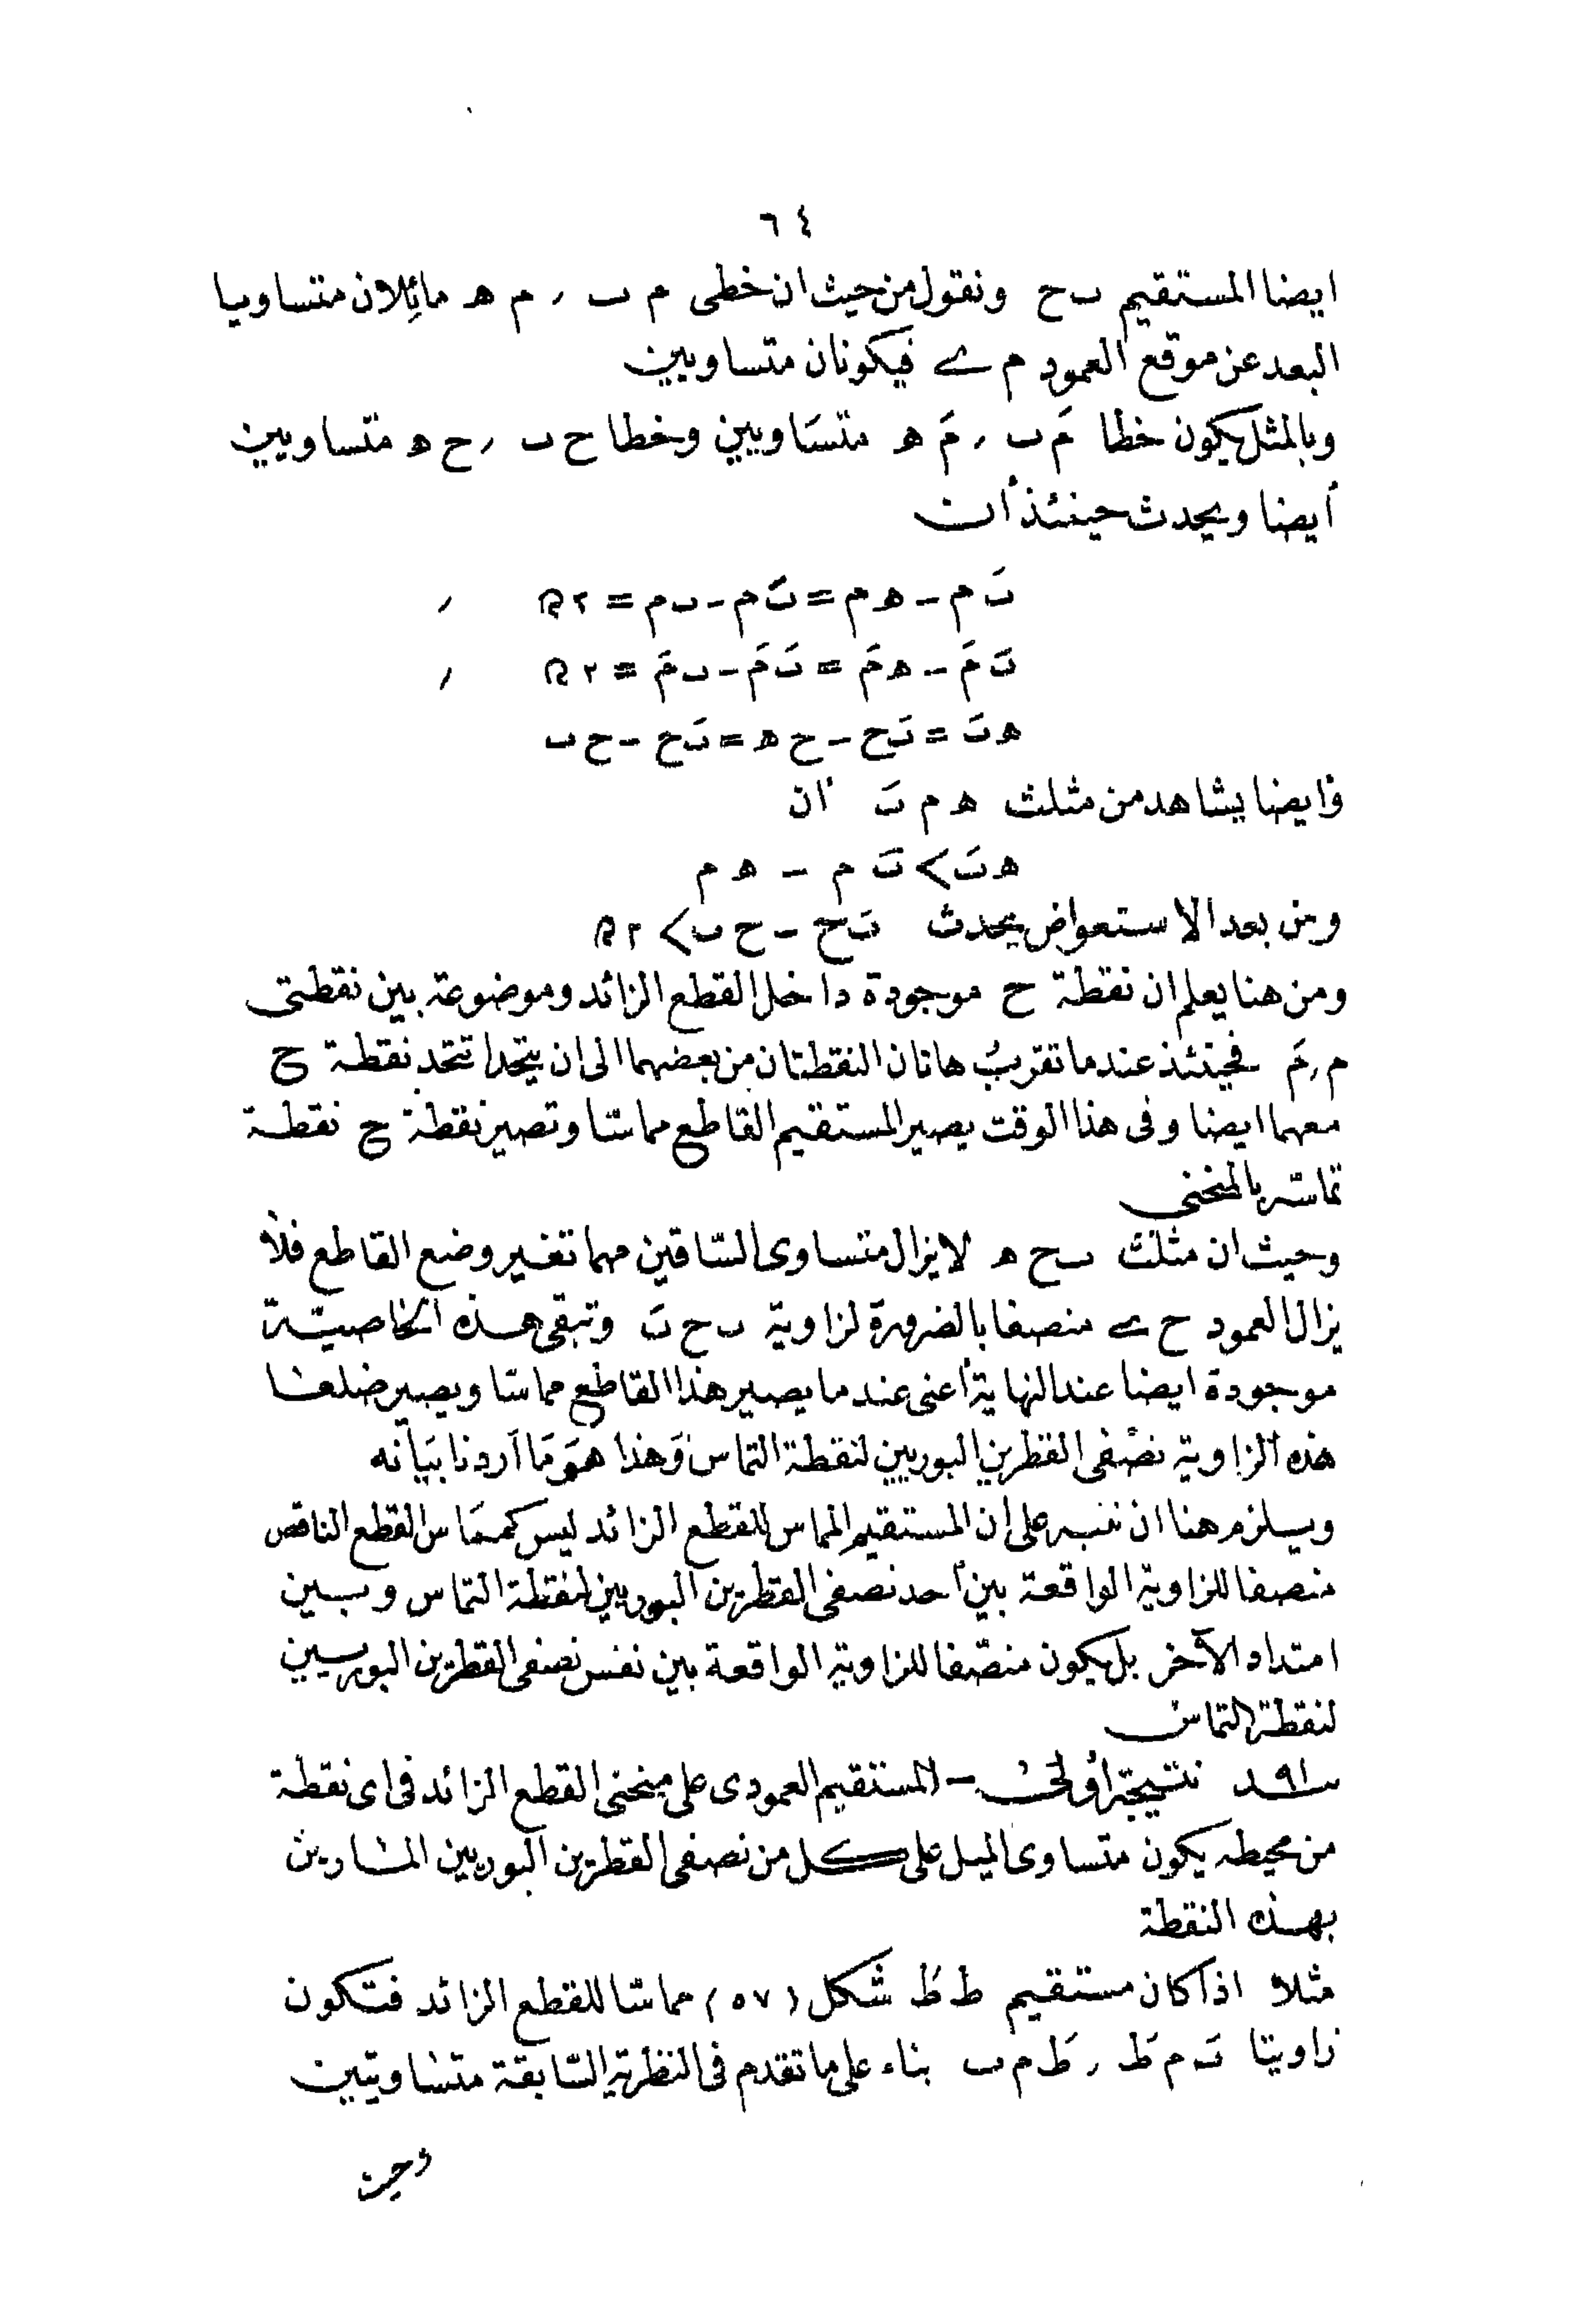 ٦٤
ايضا المستقيم ب ح ونقول من حيث ان خطى م ب , م ه مائلان متساويا
البعد عن موقع العمود م ے فيكونان متساويين
وبالمثل يكون خطا مَ ب , مَ ه متساويين وخطا ح ب , ح ه متساويين
أيضا ويحدث حينئذ أن
بَ م - ه م = بَ م - ب م = ٢ ,
بَ مَ - ه مَ = بَ مَ - ب مَ = ٢ ,
ه بَ = بَ ح - ح ه = بَ ح - ح ب
وأيضا يشاهد من مثلث ه م بَ ان
ه بَ > بَ م - ه م
ومن بعد الاستعواض يحدث بَ ح - ح ب > ٢
ومن هنا يعلم ان نقطة ح موجودة داخل القطع الزائد وموضوعة بين نقطتى
م , مَ فحينئذ عندما تقرب هاتان النقطتان من بعضهما الى ان يتحدا تتحد نقطة ح
معهما ايضا وفى هذا الوقت يصير المستقيم القاطع مماسّا وتصير نقطة ح نقطة
تماسّه بالمنحنى
وحيث ان مثلث ب ح ه لايزال متساوى السّاقين مهما تغير وضع القاطع فلا
يزال العمود ح ے منصفا بالضرورة لزاوية ب ح بَ وتبقى هذه الخاصيّة
موجودة ايضا عند النهاية أعنى عندما يصير هذا القاطع مماسّا ويصير ضلعا
هذه الزاوية نصفى القطرين البوريين لنقطة التماس وَهذا هوَ مَا أردنا بَيَانه
ويلزم هنا ان ننبه على ان المستقيم المماس للقطع الزائد ليس كممَاس القطع الناقص
منصفا للزاوية الواقعة بين أحد نصفى القطرين البوريين لنقطة التماس وبين
امتداد الآخر بل يكون منصّفا للزاوية الواقعة بين نفس نصفى القطرين البوريين
لنقطة التماس
٩١ نتيجة أولى - المستقيم العمودى على منحنى القطع الزائد فى اى نقطة
من محيطه يكون متساوى الميل على كل من نصفى القطرين البوريين المارين
بهذه النقطة
مثلا اذا كان مستقيم ط طَ شكل (٥٧) مماسّا للقطع الزائد فتكون
زاويتا بَ م طَ , طَ م ب بناء على ما تقدم فى النظرية السّابقة متساويتين
وحيث